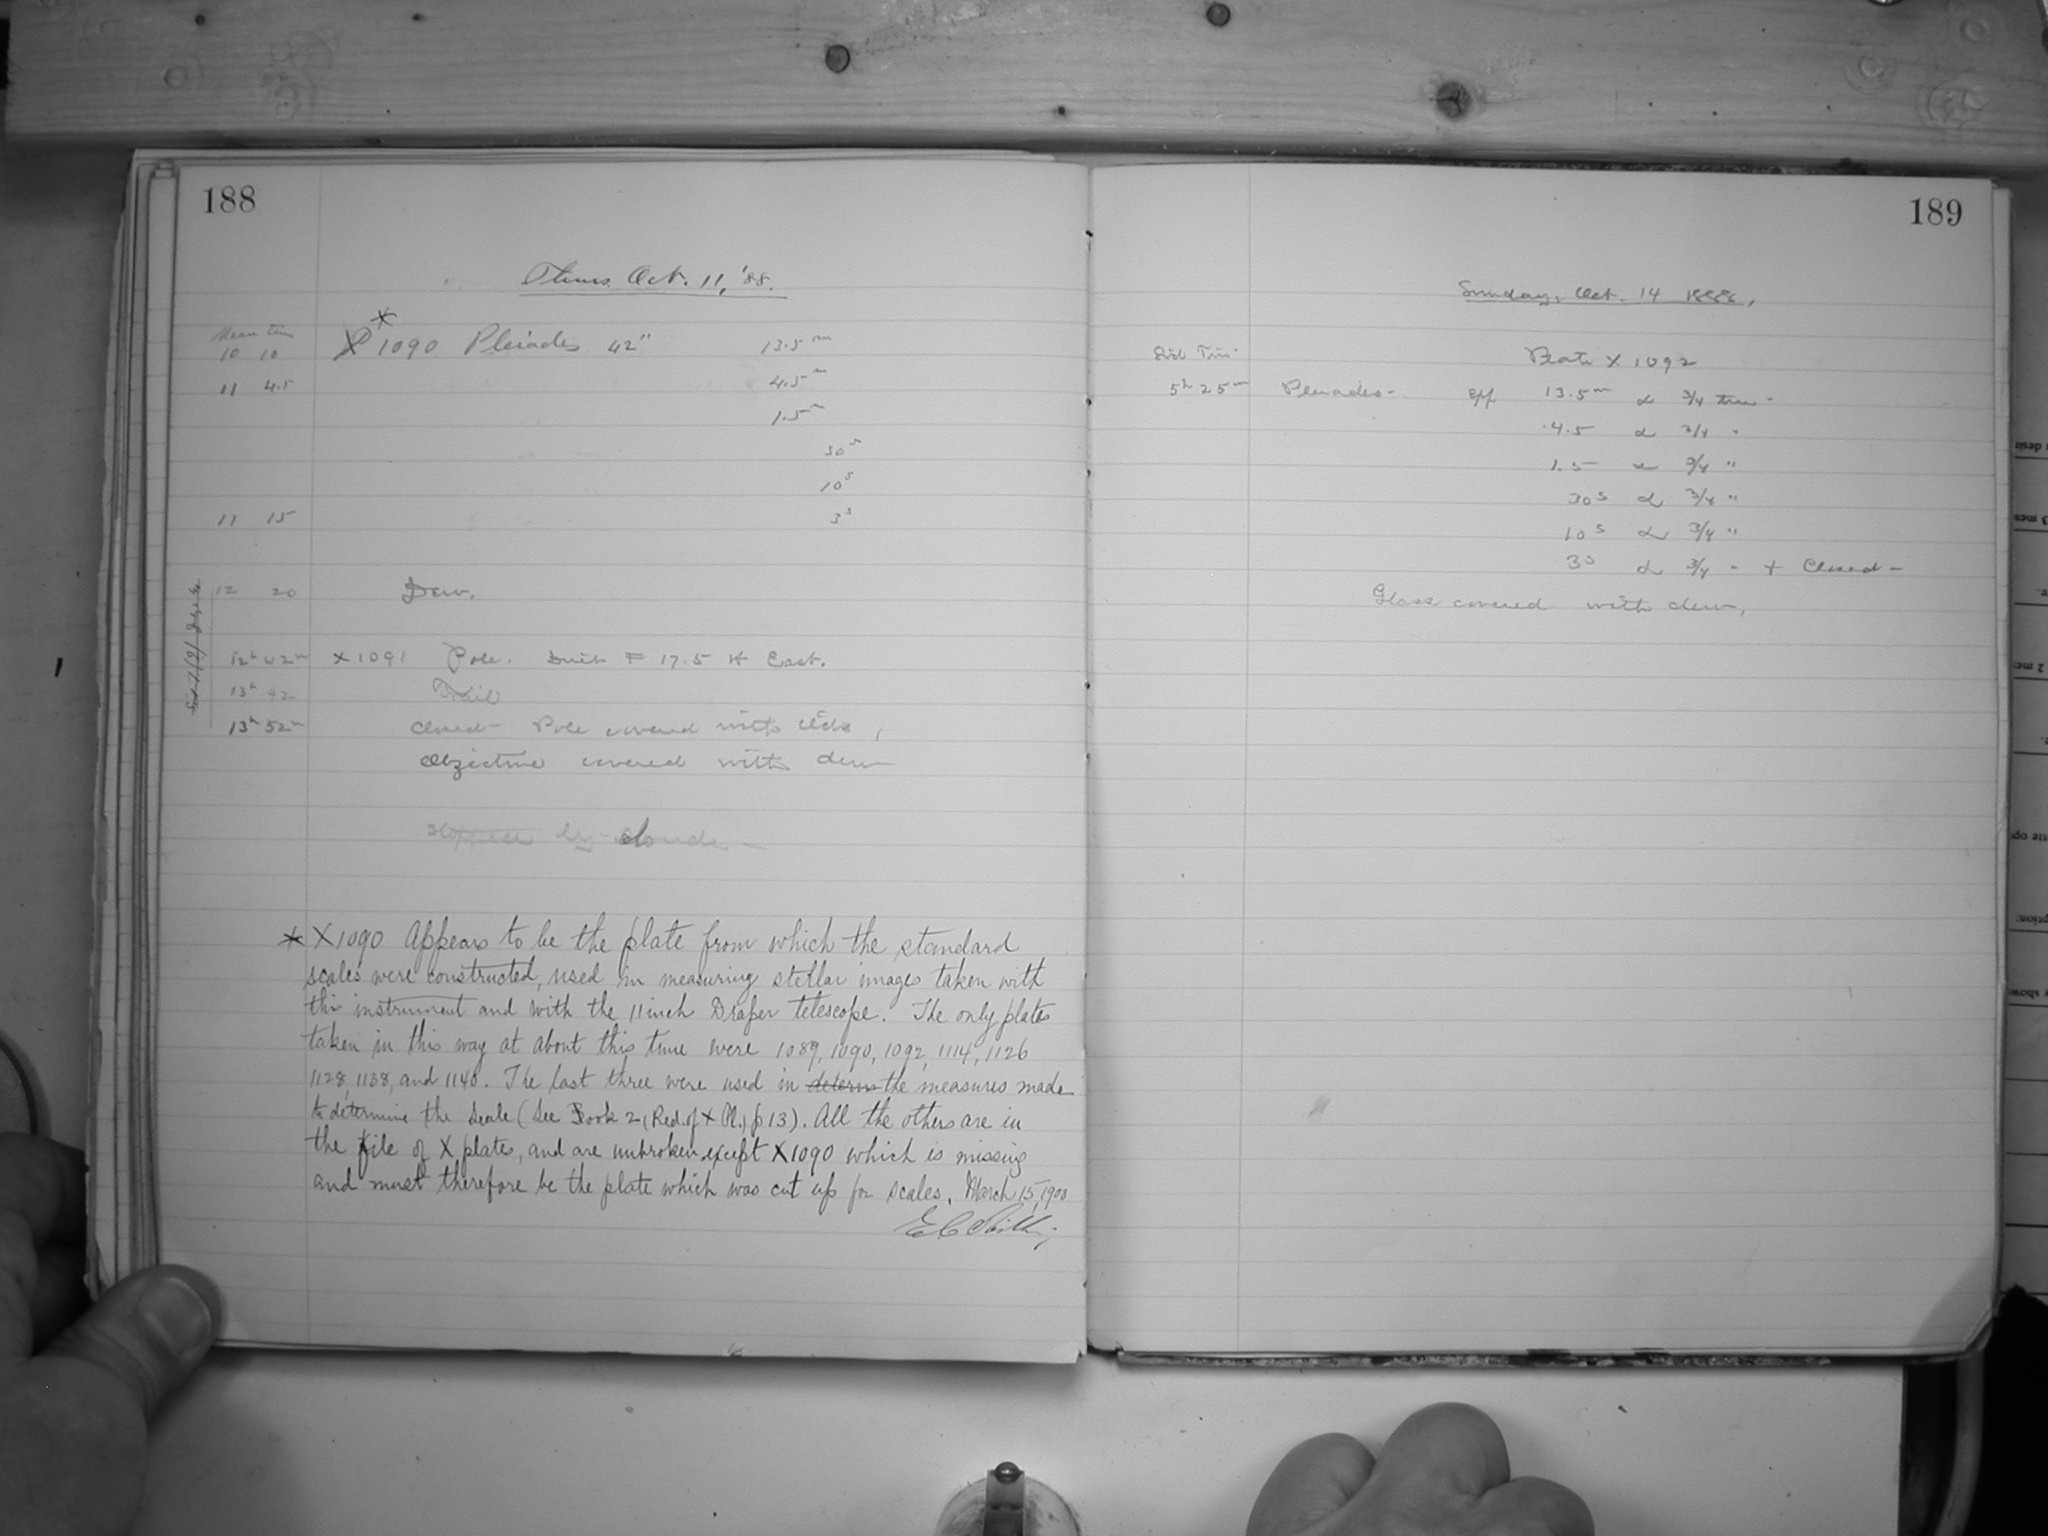 188
Thurs Oct. 11, '88.
Mean time
10 10 X * 1090 Pleiades 42" 13.5 m
11 4.5 4.5 m
1.5 m
30 s
10 s
11 15 3 s
12 20 Dew.
12h 42m X 1091 Pole. F = 17.5 H East.
13h 42 Trail
13h 52m Closed - Pole covered with clds,
Objective covered with dew
Stopped by clouds -
* X1090 Appears to be the plate from which the standard
scales were constructed, used in measuring stellar images taken with
this instrument and with the 11 inch Draper telescope. The only plates
taken in this way at about this time were 1089, 1090, 1092, 1114, 1126
1128, 1138, and 1140. The last three were used in determ the measures made
to determine the scale (See Book 2, (Red. of X Pl.) p 13). All the others are in
the file of X plates, and are unbroken except X1090 which is missing
and must therefore be the plate which was cut up for scales. March 15, 1900
189
Sunday, Oct. 14 1888,
Sid Time Plate X 1092
5h 25m Pleiades - Exp 13.5m α 3/4 turn -
4.5 α 3/4 "
1.5 α 3/4 "
30s α 3/4 "
10s α 3/4 "
3s α 3/4 " + Closed -
Glass covered with dew,